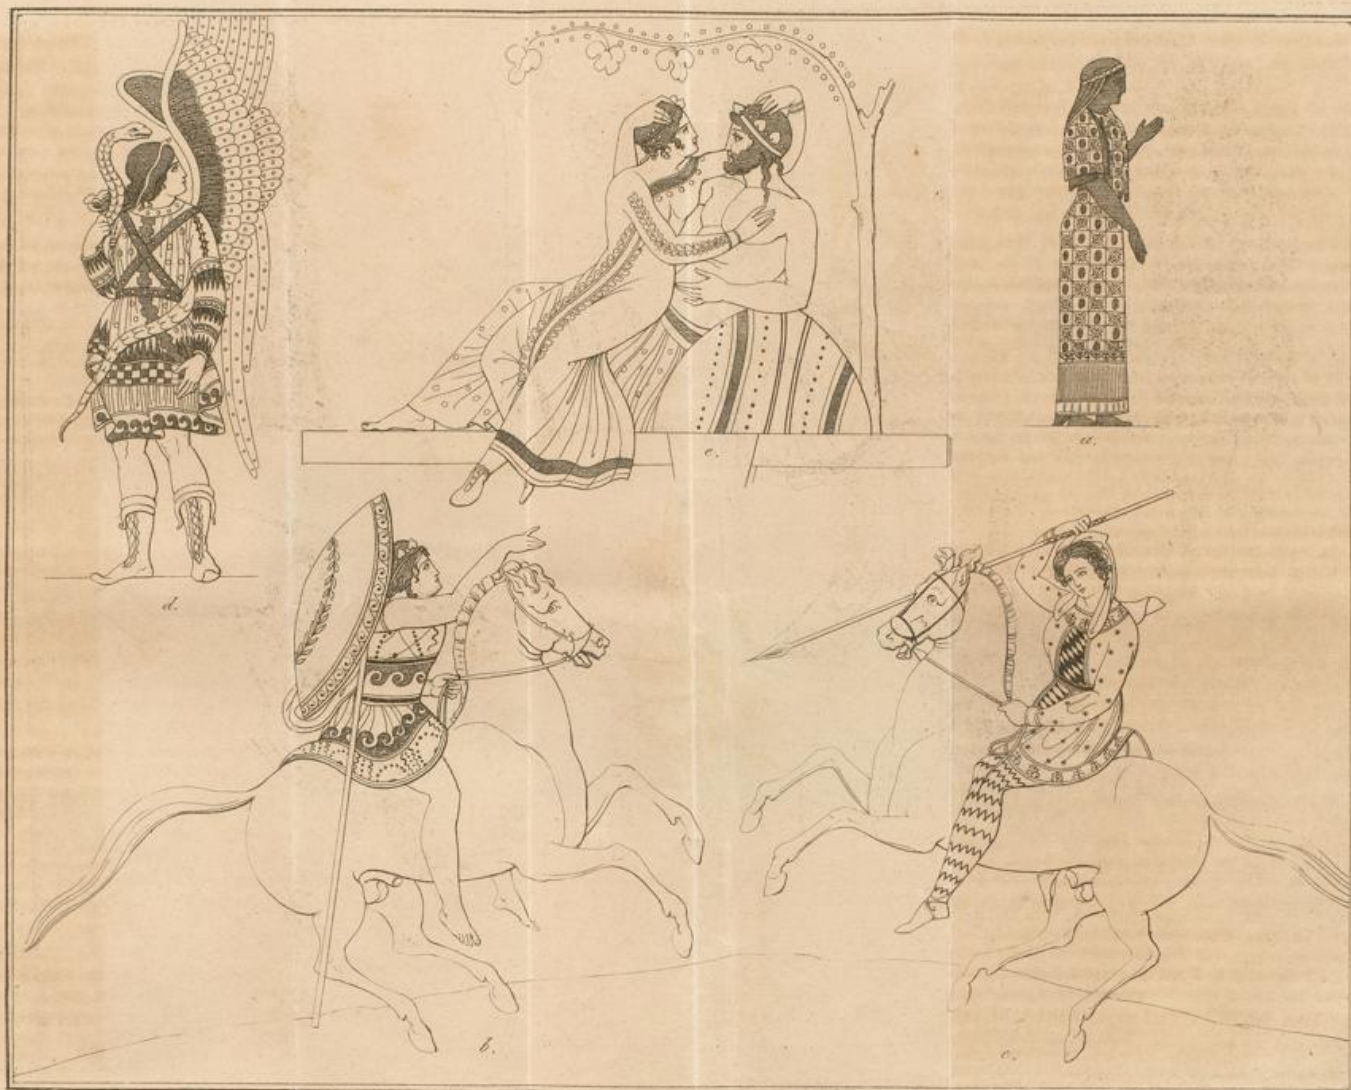 e.
a.
d.
b.
c.